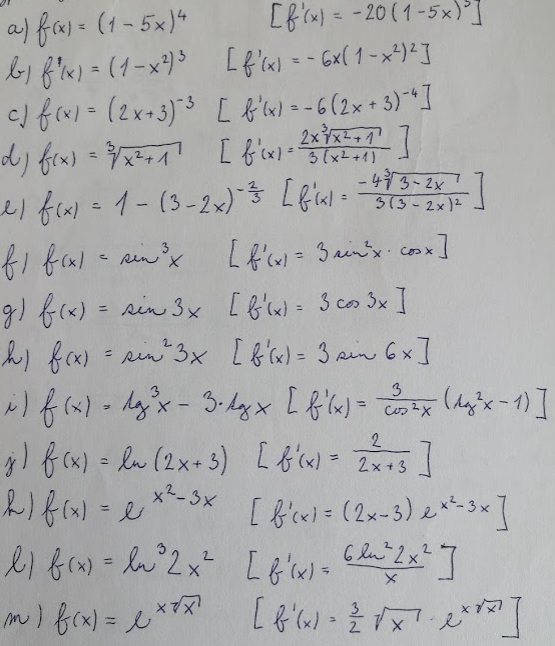 a) f(x) = (1 - 5x)⁴ [f'(x) = -20(1-5x)³]
b) f'(x) = (1-x²)³ [f'(x) = -6x(1-x²)²]
c) f(x) = (2x+3)⁻³ [f'(x) = -6(2x+3)⁻⁴]
d) f(x) = ∛(x²+1) [f'(x) = 2x∛(x²+1) / 3(x²+1)]
e) f(x) = 1 - (3-2x)^(-2/3) [f'(x) = -4∛(3-2x) / 3(3-2x)²]
f) f(x) = sin³x [f'(x) = 3 sin²x · cos x]
g) f(x) = sin 3x [f'(x) = 3 cos 3x]
h) f(x) = sin²3x [f'(x) = 3 sin 6x]
i) f(x) = tg³x - 3·tg x [f'(x) = 3/cos²x (tg²x - 1)]
j) f(x) = ln(2x+3) [f'(x) = 2/(2x+3)]
k) f(x) = e^(x²-3x) [f'(x) = (2x-3) e^(x²-3x)]
l) f(x) = ln³2x² [f'(x) = 6ln²2x²/x]
m) f(x) = e^(x√x) [f'(x) = 3/2 √x · e^(x√x)]